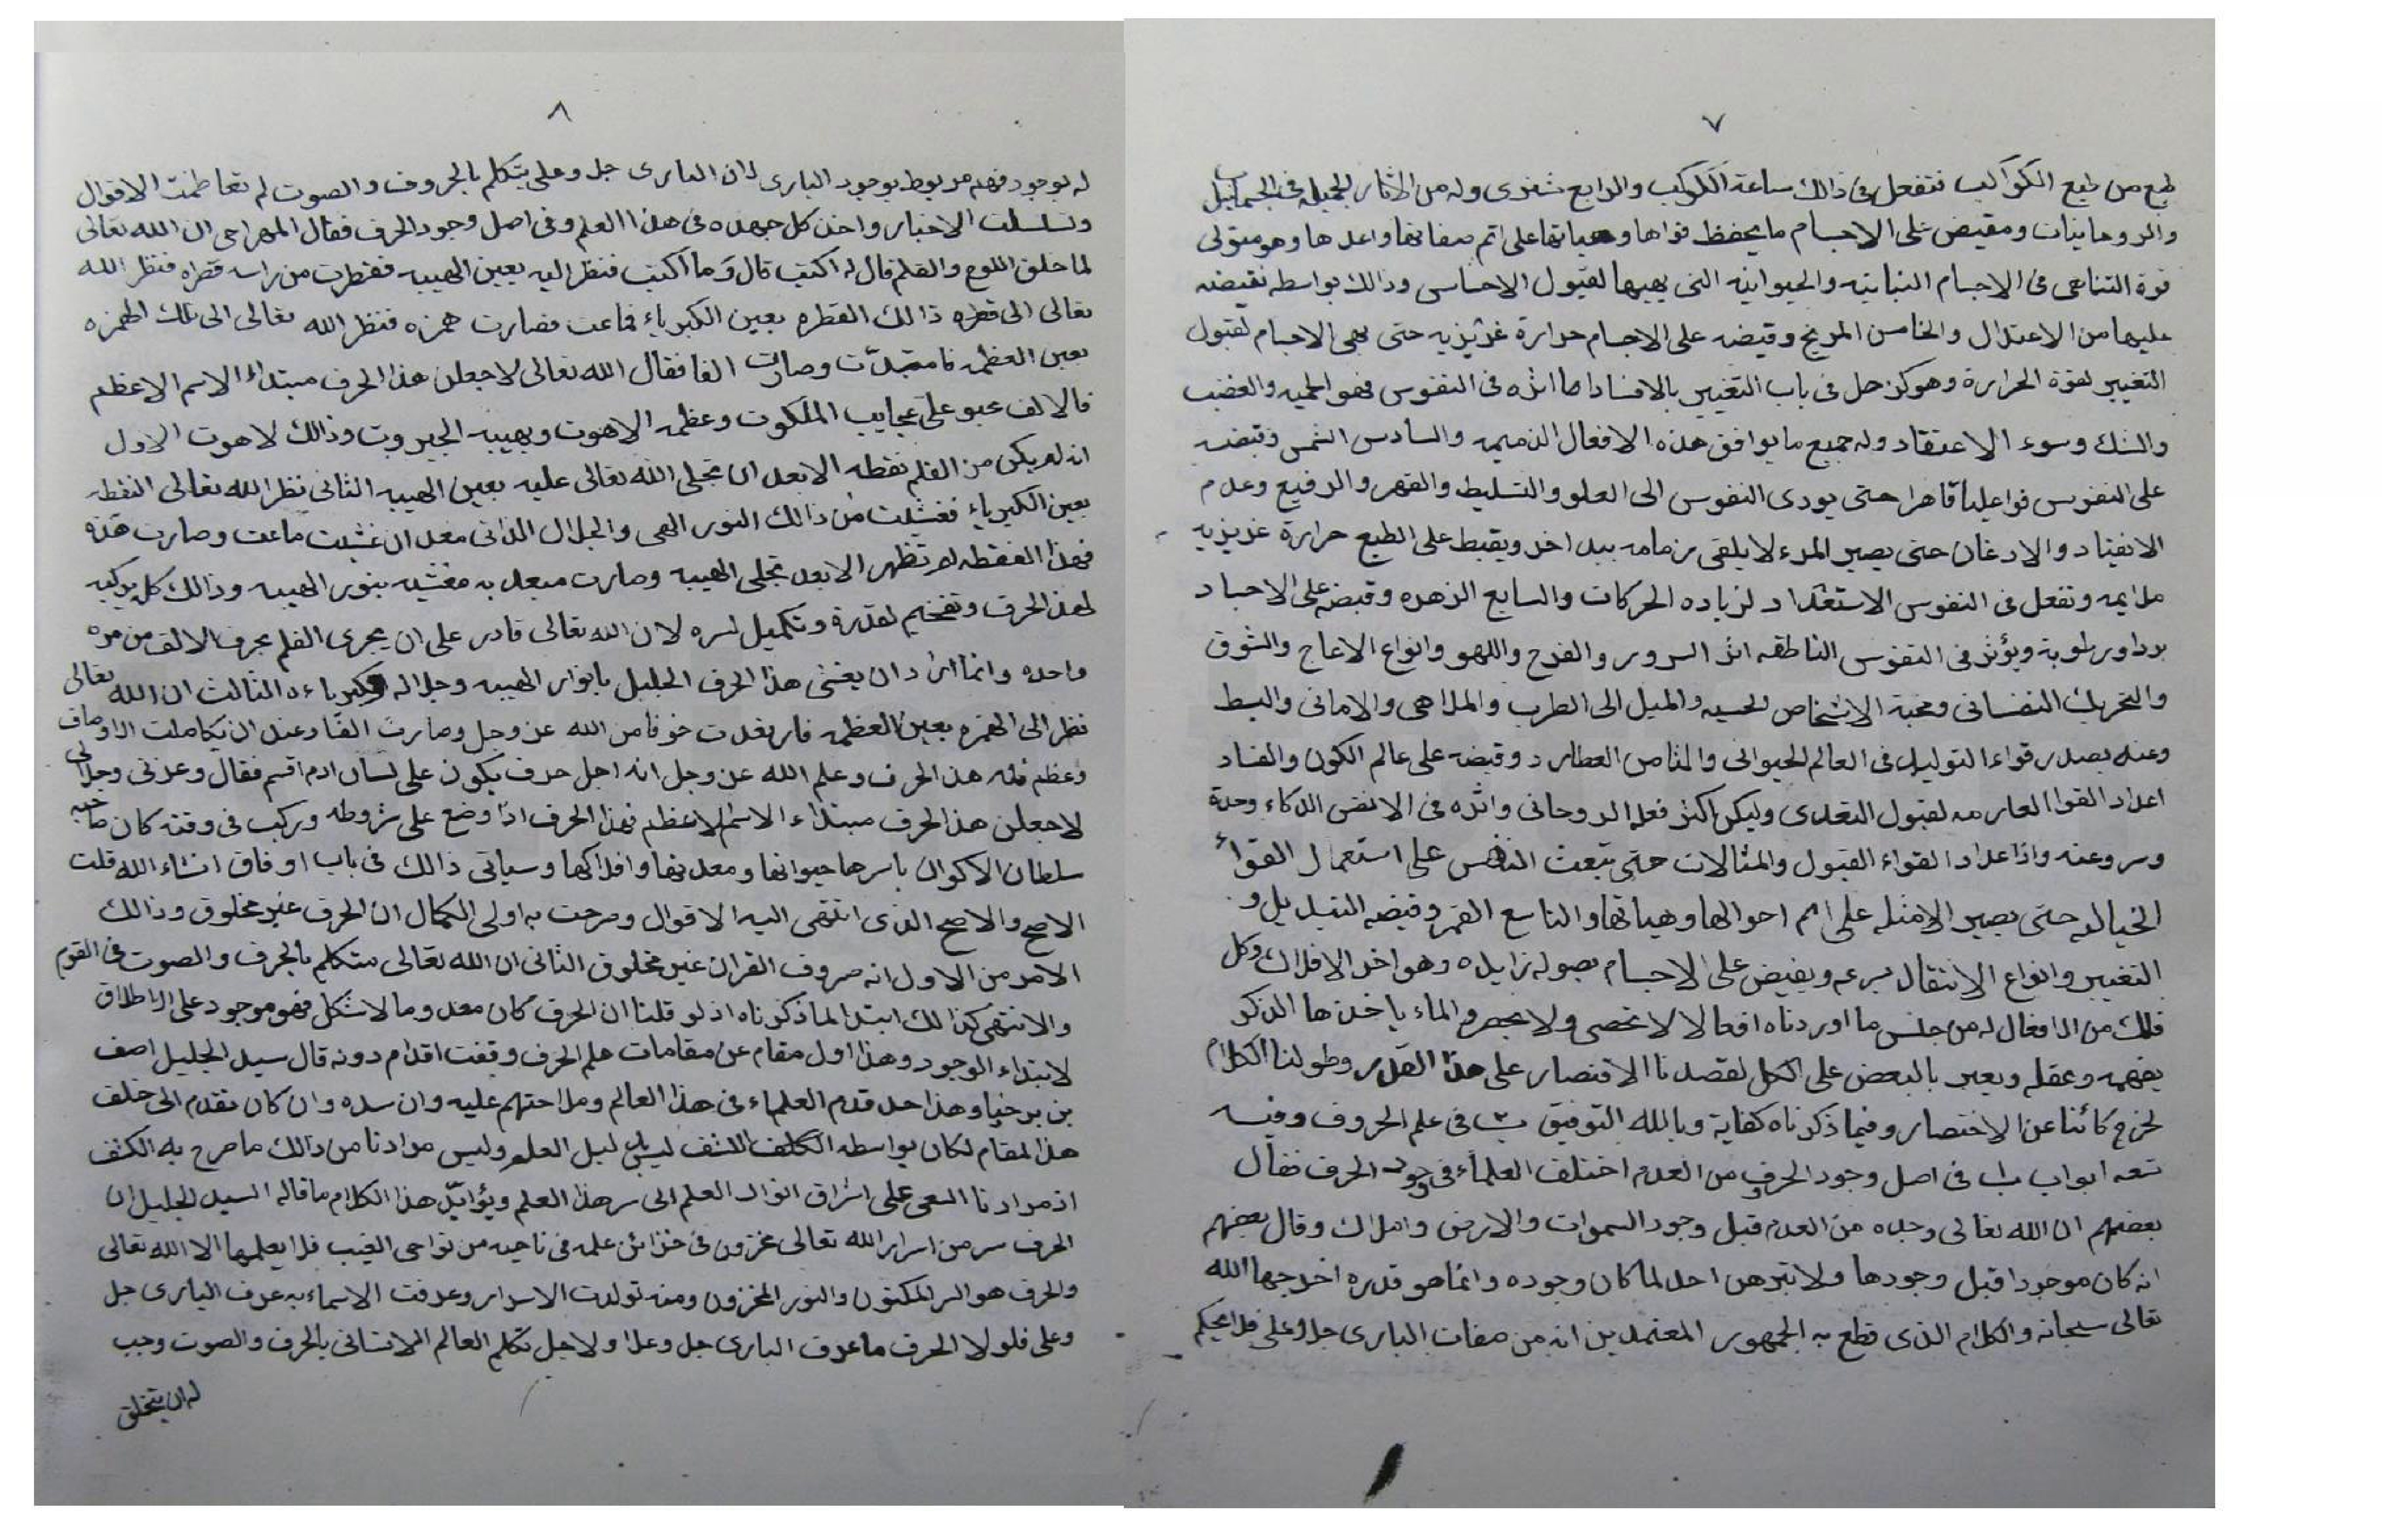 ٧
طبع من طبع الكواكب فتفعل في ذالك ساعة الكوكب والرابع شتري وله من الاثار الجميله في
والروحانيات ومقيض على الاجسام ما يحفظ قواها وهياتها على اتم صفاتها واعدها وهو متولى
قوة التناهي في الاجسام النباتيه والحيوانيه التي يهيها لقبول الاحساس وذالك بواسطه نقيضه
عليها من الاعتدال والخامس المريخ وقيضه على الاجسام حرارة غريزيه حتى يهى الاجسام لقبول
التغيير لقوة الحرارة وهو كزحل في باب التغيير بالافساد اما اثره في النفوس فهو الحميه والغضب
والشك وسوء الاعتقاد وله جميع ما يوافق هذه الافعال الذميمه والسادس الشمس وقيضه
على النفوس قواعلياً قاهرا حتى يودى النفوس الى العلو والتسليط والقهر والرفيع وعدم
الانقياد والادغان حتى يصير المرء لا يلقى زمامه بيد اخر ويقبط على الطبع حرارة غريزيه
ملايمه وتفعل في النفوس الاستعداد لزياده الحركات والسابع الزهره وقيضه على الاجساد
بردا ورطوبة ويؤثر في النفوس الناطقه اثر السرور والفرح واللهو وانواع الازعاج والشوق
والتحريك النفساني ومحبة الاشخاص لحسيه والميل الى الطرب والملاهي والاماني والبسط
وعنه يصدر قواء التوليد في العالم الحيواني والثامن العطارد وقيضه على عالم الكون والفساد
اعداد القوا العارمه لقبول التعدى وليكن اكثر فعله الروحاني واثره في الانفس الذكاء وحدة
وسروعنه واذا عداد القواء القبول والمثالات حتى تبعث النفس على استعمال القواء
الخياله حتى يصير الامثله على اتم احوالها وهياتها والتاسع القمر وقيضه التبديل و
التغيير وانواع الانتقال بسرعه ويفيض على الاجسام بصوله زايده وهو اخر الافلاك وكل
فلك من الافعال له من جنس ما اوردناه افعالا لا تحصى ولا ينحصر والماء ياخذها الذكر
بفهمه وعقله ويعبر بالبعض على الكل لقصدنا الاقتصار على هذا القدر وطولنا الكلام
لخرج كائنا عن الاختصار وفيما ذكرناه كفاية وبالله التوفيق ب في علم الحروف وفيه
تسعه ابواب باب في اصل وجود الحرف من العدم اختلف العلماء في وجود الحرف فقال
بعضهم ان الله تعالى وجده من العدم قبل وجود السموات والارض واملاك وقال بعضهم
انه كان موجودا قبل وجودها ولا تبرهن احد لما كان وجوده وانما هو قدره اخرجها الله
تعالى سبحانه والكلام الذي قطع به الجمهور المعتمدين انه من صفات البارى جل وعلى فلا يحكم
٨
له بوجود فهم مربوط بوجود البارى لان البارى جل وعلى يتكلم بالحروف والصوت لم تعاظمت الاقوال
وتسلسلت الاخبار واخذ كل جهده في هذا العلم وفي اصل وجود الحرف فقال المهراجي ان الله تعالى
لما خلق اللوح والقلم قال له اكتب قال وما اكتب فنظر اليه بعين الهيبه فقطرت من راسه قطره فنظر الله
تعالى الى قطره ذالك القطره بعين الكبرياء فماعت فصارت همزه فنظر الله تعالى الى تلك الهمزه
بعين العظمه فامتدّت وصارت الفا فقال الله تعالى لاجعلن هذا الحرف مبتداء الاسم الاعظم
فالالف عبو على عجايب الملكوت وعظمه الاهوت وبهيبه الجبروت وذالك لاهوت الاول
انه لم يكن من القلم نقطه الا بعد ان تجلى الله تعالى عليه بعين الهيبه الثاني نظر الله تعالى النقطه
بعين الكبرياء فغشيت من ذالك النور الهي والجلال الذاتي فعند ان غشيت ماعت وصارت همزه
فهذا النقطه لم تظهر الا بعد تجلى الهيبه وصارت مبعد به مغشيه بنور الهيبه وذالك كله يوكيه
لهذا الحرف وتفخيم لقدرة وتكميل لسره لان الله تعالى قادر على ان يجرى القلم بحرف الالف من مره
واحده وانما اراد ان يغشى هذا الحرف الجليل بانوار الهيبه وجلاله وكبرياءه الثالث ان الله تعالى
نظر الى الهمزه بعين العظمه فارتعدت خوفا من الله عز وجل وصارت الفا وعند ان تكاملت الاوصاف
وعظم قدر هذا الحرف وعلم الله عز وجل انه اجل حرف يكون على لسان ادم اقسم فقال وعزتي وجلالي
لاجعلن هذا الحرف مبتداء الاسم الاعظم فهذا الحرف اذا وضع على شروطه وركب في وقته كان صاحبه
سلطان الاكوان باسرها حيوانها ومعدنها وافلاكها وسياتي ذالك في باب اوفاق انشاء الله قلت
الاصح والاصح الذي انتهى اليه الاقوال وصرحت به اولى الكمال ان الحرف غير مخلوق وذالك
الامر من الاول انه حروف القران غير مخلوق الثاني ان الله تعالى متكلم بالحرف والصوت في القوم
والانتهى كذالك ابتدا لما ذكرناه اذ لو قلنا ان الحرف كان معدوما لاشكل فهو موجود على الاطلاق
لابتداء الوجود وهذا اول مقام عن مقامات علم الحرف وقفت اقدام دونه قال سيد الجليل اصف
بن برخيا وهذا حد قدم العلماء في هذا العالم وملاحتهم عليه وان سده وان كان تقدم الى خلف
هذا المقام لكان بواسطه الكشف ليس لبيل العلم وليس مرادنا من ذالك ما صرح به الكشف
اذ مرادنا السعى على اشراق انوار العلم الى سر هذا العلم ويؤايّد هذا الكلام ما قاله السيد الجليل ان
الحرف سر من اسرار الله تعالى مخزون في خزائن علمه في ناحيه من نواحى الغيب فلا يعلمها الا الله تعالى
والحرف هو السر المكنون والنور المخزون ومنه تولدت الاسرار وعرفت الاسماء به عرف البارى جل
وعلى فلولا الحرف ما عرف البارى جل وعلا ولاجل تكلم العالم الانساني بالحرف والصوت وجب
له ان يتخلق